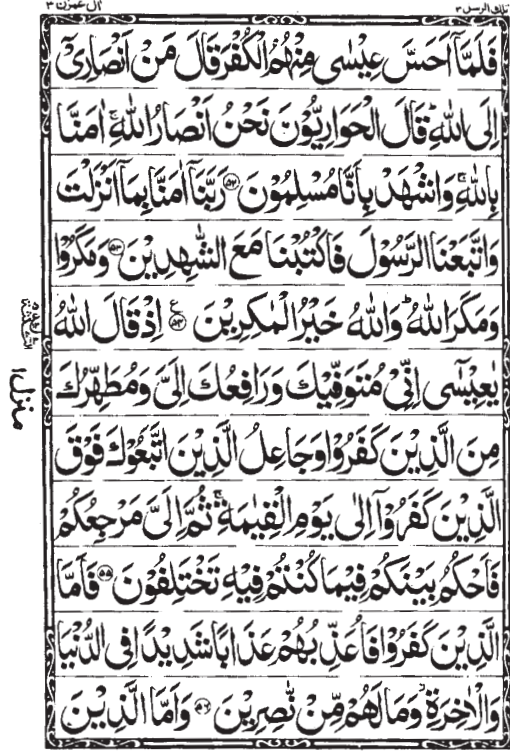 تلك الرسل ٣
اٰل عمرٰن ٣
فَلَمَّاۤ اَحَسَّ عِيْسٰى مِنْهُمُ الْكُفْرَ قَالَ مَنْ اَنْصَارِىْۤ
اِلَى اللّٰهِؕ قَالَ الْحَوَارِيُّوْنَ نَحْنُ اَنْصَارُ اللّٰهِۚ اٰمَنَّا
بِاللّٰهِۚ وَاشْهَدْ بِاَنَّا مُسْلِمُوْنَ ﴿۵۲﴾ رَبَّنَاۤ اٰمَنَّا بِمَاۤ اَنْزَلْتَ
وَاتَّبَعْنَا الرَّسُوْلَ فَاكْتُبْنَا مَعَ الشّٰهِدِيْنَ ﴿۵۳﴾ وَمَكَرُوْا
وَمَكَرَ اللّٰهُؕ وَاللّٰهُ خَيْرُ الْمٰكِرِيْنَ ﴿۵۴﴾ ع اِذْ قَالَ اللّٰهُ
يٰعِيْسٰۤى اِنِّىْ مُتَوَفِّيْكَ وَرَافِعُكَ اِلَىَّ وَمُطَهِّرُكَ
مِنَ الَّذِيْنَ كَفَرُوْا وَجَاعِلُ الَّذِيْنَ اتَّبَعُوْكَ فَوْقَ
الَّذِيْنَ كَفَرُوْۤا اِلٰى يَوْمِ الْقِيٰمَةِۚ ثُمَّ اِلَىَّ مَرْجِعُكُمْ
فَاَحْكُمُ بَيْنَكُمْ فِيْمَا كُنْتُمْ فِيْهِ تَخْتَلِفُوْنَ ﴿۵۵﴾ فَاَمَّا
الَّذِيْنَ كَفَرُوْا فَاُعَذِّبُهُمْ عَذَابًا شَدِيْدًا فِى الدُّنْيَا
وَالْاٰخِرَةِ وَمَا لَهُمْ مِّنْ نّٰصِرِيْنَ ﴿۵۶﴾ وَاَمَّا الَّذِيْنَ
منزل ١